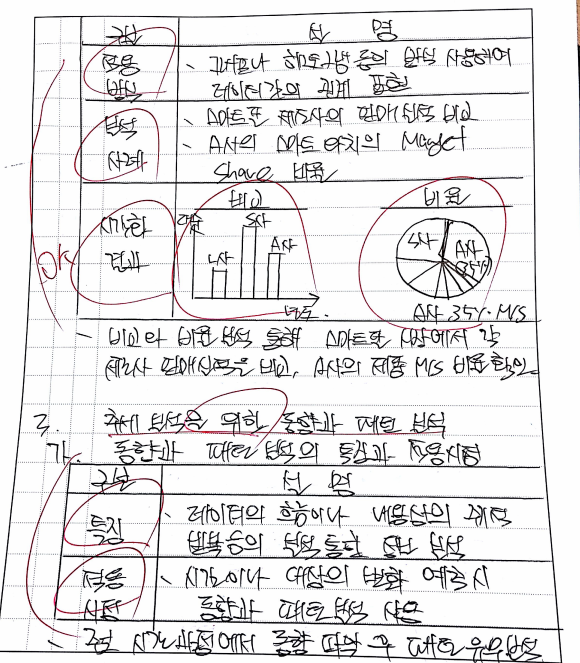 구분 설 명
적용 방식
- 그래프나 히스토그램 등의 방식 사용하여
데이터간의 관계 표현
분석 사례
- 스마트폰 제조사의 판매실적 비교
- A사의 스마트 워치의 Market
Share 비율
시각화 결과
비교 비율
S사
L사 A사
년도
L사 A사 35%
A사 35% M/S
- 비교와 비율 분석을 통해 스마트폰 시장에서 각
제조사 판매실적을 비교, A사의 제품 M/S 비율 확인
3. 추세 분석을 위한 동향과 패턴 분석
가. 동향과 패턴 분석의 특징과 적용시점
구분 설 명
특징
- 데이터의 흐름이나 내용상의
반복등의 분석 통한 분석
적용 시점
- 시간이나 대상의 변화 예측시
동향과 패턴분석 사용
- 시간과정에서 동향 파악 후 패턴유무분석